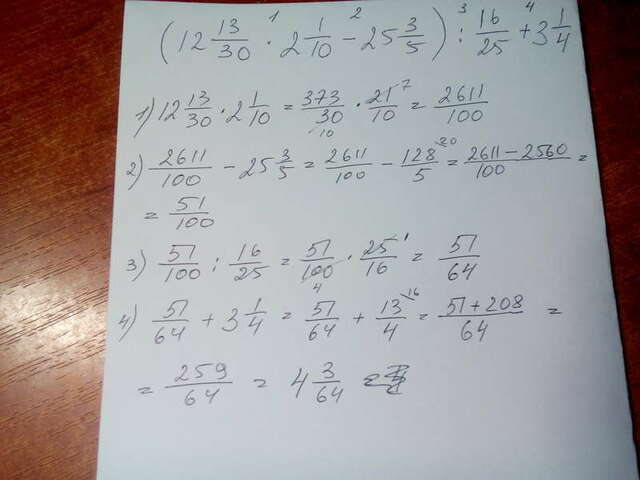 (12 13/30 · 2 1/10 − 25 3/5) : 16/25 + 3 1/4
1) 12 13/30 · 2 1/10 = 373/30 · 21/10 = 2611/100
2) 2611/100 − 25 3/5 = 2611/100 − 128/5 = 2611−2560/100 =
= 51/100
3) 51/100 : 16/25 = 51/100 · 25/16 = 51/64
4) 51/64 + 3 1/4 = 51/64 + 13/4 = 51+208/64 =
= 259/64 = 4 3/64